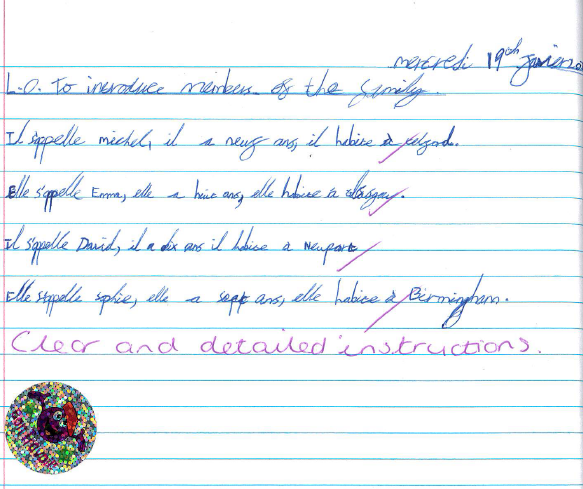 mercredi 19th Janvier
L.O. To introduce members of the family.
Il s'appelle michel, il a neuf ans, il habite à Belgord.
Elle s'appelle Emma, elle a huit ans, elle habite à Glasgay.
Il s'appelle David, il a dix ans il habite à Newport
Elle s'appelle sophie, elle a sept ans, elle habite à Birmingham.
Clear and detailed instructions.